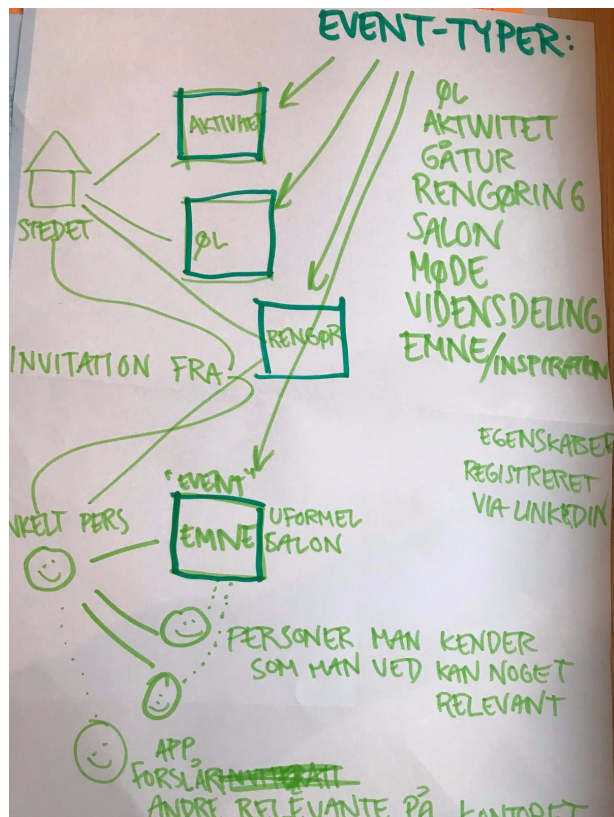 EVENT-TYPER:
ØL
AKTIVITET
GÅTUR
RENGØRING
SALON
MØDE
VIDENSDELING
EMNE/INSPIRATION
AKTIVITET
STEDET
ØL
RENGØR
INVITATION FRA
EGENSKABER
REGISTRERET
VIA LINKEDIN
"EVENT"
NKELT PERS
EMNE
UFORMEL
SALON
PERSONER MAN KENDER
SOM MAN VED KAN NOGET
RELEVANT
APP
FORSLÅR
ANDRE RELEVANTE PÅ KONTORET